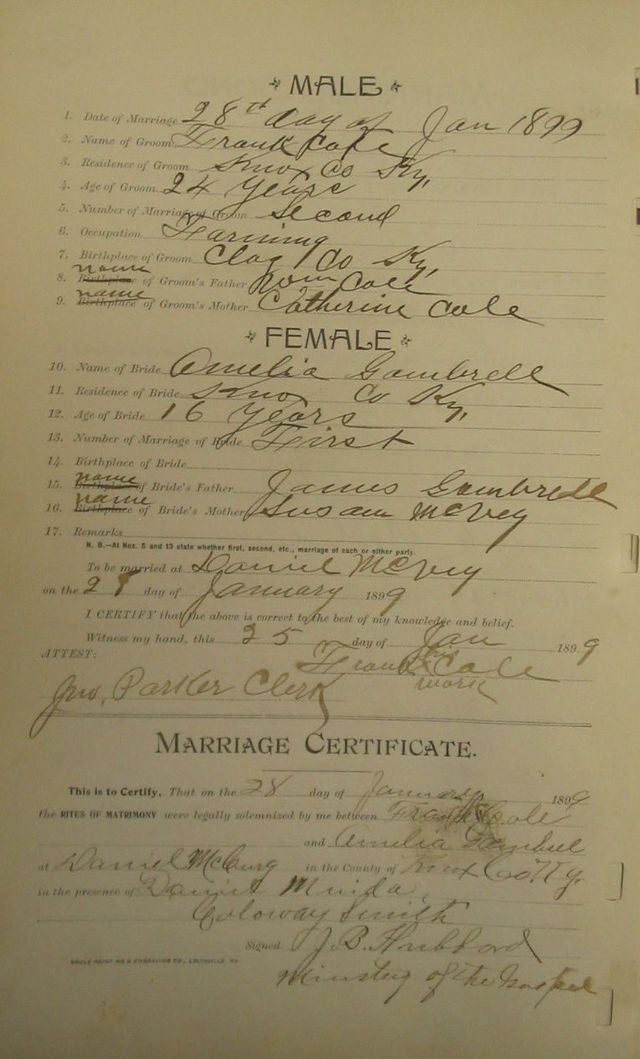 MALE
1. Date of Marriage 28th day of Jan 1899
2. Name of Groom Frank Cole
3. Residence of Groom Knox Co Ky,
4. Age of Groom 24 Years
5. Number of Marriage of Groom Second
6. Occupation Farming
7. Birthplace of Groom Clay Co Ky,
name
8. Birthplace of Groom's Father Cole
name
9. Birthplace of Groom's Mother Catherine Cole
FEMALE
10. Name of Bride Amelia Gambrell
11. Residence of Bride Knox Co Ky,
12. Age of Bride 16 Years
13. Number of Marriage of Bride First
14. Birthplace of Bride
name
15. Birthplace of Bride's Father James Gambrell
name
16. Birthplace of Bride's Mother Susan McVey
17. Remarks
N. B.—At Nos. 5 and 13 state whether first, second, etc., marriage of each or either party.
To be married at Daniel McVey
on the 28 day of January 1899
I CERTIFY that the above is correct to the best of my knowledge and belief.
Witness my hand, this 25 day of Jan 1899
ATTEST: Frank his Cole
mark
Jno, Parker Clerk
MARRIAGE CERTIFICATE.
This is to Certify, That on the 28 day of January 1899
the RITES OF MATRIMONY were legally solemnized by me between Frank Cole
and Amelia
at Daniel in the County of Knox Co Ky.
in the presence of Daniel
Coloway Smith
Signed J. B. Hubbard
of the Gospel